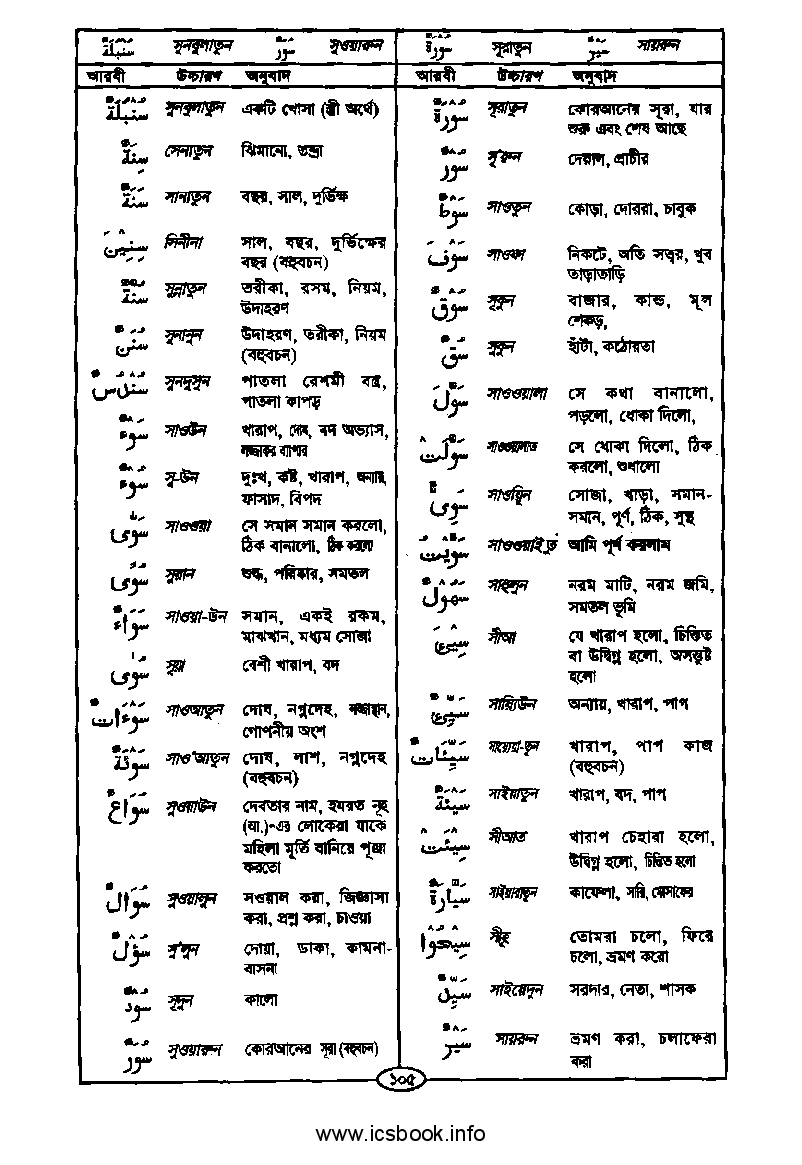 سُنْبُلَةٌ সুনবুলাতুন سُوَرٌ সুওয়ারুন
আরবী উচ্চারণ অনুবাদ
سُنْبُلَةٌ সুনবুলাতুন একটি খোসা (স্ত্রী অর্থে)
سِنَةٌ সেনাতুন ঝিমানো, তন্দ্রা
سَنَةٌ সানাতুন বছর, সাল, দুর্ভিক্ষ
سِنِيْنَ সিনীনা সাল, বছর, দুর্ভিক্ষের
বছর (বহুবচন)
سُنَّةٌ সুন্নাতুন তরীকা, রসম, নিয়ম,
উদাহরণ
سُنَنٌ সুনানুন উদাহরণ, তরীকা, নিয়ম
(বহুবচন)
سُنْدُسٌ সুনদুসুন পাতলা রেশমী বস্ত্র,
পাতলা কাপড়
سَوْءٌ সাওউন খারাপ, দোষ, বদ অভ্যাস,
লজ্জাকর ব্যাপার
سُوْءٌ সূ-উন দুঃখ, কষ্ট, খারাপ, অন্যায়,
ফাসাদ, বিপদ
سَوّٰى সাওওয়া সে সমান সমান করলো,
ঠিক বানালো, ঠিক করলো
سُوًى সুয়ান শুদ্ধ, পরিষ্কার, সমতল
سَوَاءٌ সাওয়া-উন সমান, একই রকম,
মাঝখান, মধ্যম সোজা
سُوْٰى সূয়া বেশী খারাপ, বদ
سَوْءَاتٌ সাওআতুন দোষ, নগ্নদেহ, লজ্জাস্থান,
গোপনীয় অংশ
سَوْئَةٌ সাও'আতুন দোষ, লাশ, নগ্নদেহ
(বহুবচন)
سُوَاعٌ সুওয়াউন দেবতার নাম, হযরত নূহ
(আ.)-এর লোকেরা যাকে
মহিলা মূর্তি বানিয়ে পূজা
করতো
سُوَالٌ সুওয়ালুন সওয়াল করা, জিজ্ঞাসা
করা, প্রশ্ন করা, চাওয়া
سُؤْلٌ সু'লুন দোয়া, ডাকা, কামনা-
বাসনা
سُوْدٌ সূদুন কালো
سُوَرٌ সুওয়ারুন কোরআনের সূরা (বহুবচন)
سُوْرَةٌ সূরাতুন سَيْرٌ সায়রুন
আরবী উচ্চারণ অনুবাদ
سُوْرَةٌ সূরাতুন কোরআনের সূরা, যার
শুরু এবং শেষ আছে
سُوْرٌ সূ'রুন দেয়াল, প্রাচীর
سَوْطٌ সাওতুন কোড়া, দোররা, চাবুক
سَوْفَ সাওফা নিকটে, অতি সত্ত্বর, খুব
তাড়াতাড়ি
سُوْقٌ সূকুন বাজার, কান্ড, মূল
শেকড়,
سُقٌ সুকুন হাঁটা, কঠোরতা
سَوَّلَ সাওওয়ালা সে কথা বানালো,
পড়লো, ধোকা দিলো,
سَوَّلَتْ সাওওয়ালাত সে ধোকা দিলো, ঠিক
করলো, শুধালো
سَوِىٌّ সাওয়িয়ুন সোজা, খাড়া, সমান-
সমান, পূর্ণ, ঠিক, সুস্থ
سَوَّيْتُ সাওওয়াইতু আমি পূর্ণ করলাম
سُهُوْلٌ সাহুলুন নরম মাটি, নরম জমি,
সমতল ভূমি
سِيْئَ সীআ যে খারাপ হলো, চিন্তিত
বা উদ্বিগ্ন হলো, অসন্তুষ্ট
হলো
سَيِّئٌ সায়্যিউন অন্যায়, খারাপ, পাপ
سَيِّئَاتٌ খারাপ, পাপ কাজ
(বহুবচন)
سَيِّئَةٌ সাইয়াতুন খারাপ, বদ, পাপ
سِيْئَتْ সীআত খারাপ চেহারা হলো,
উদ্বিগ্ন হলো, চিন্তিত হলো
سَيَّارَةٌ সাইয়ারাতুন কাফেলা, সারি, মোসাফের
سِيْحُوْا সীহূ তোমরা চলো, ফিরে
চলো, ভ্রমণ করো
سَيِّدٌ সাইয়েদুন সরদার, নেতা, শাসক
سَيْرٌ সায়রুন ভ্রমণ করা, চলাফেরা
করা
১০৫
www.icsbook.info